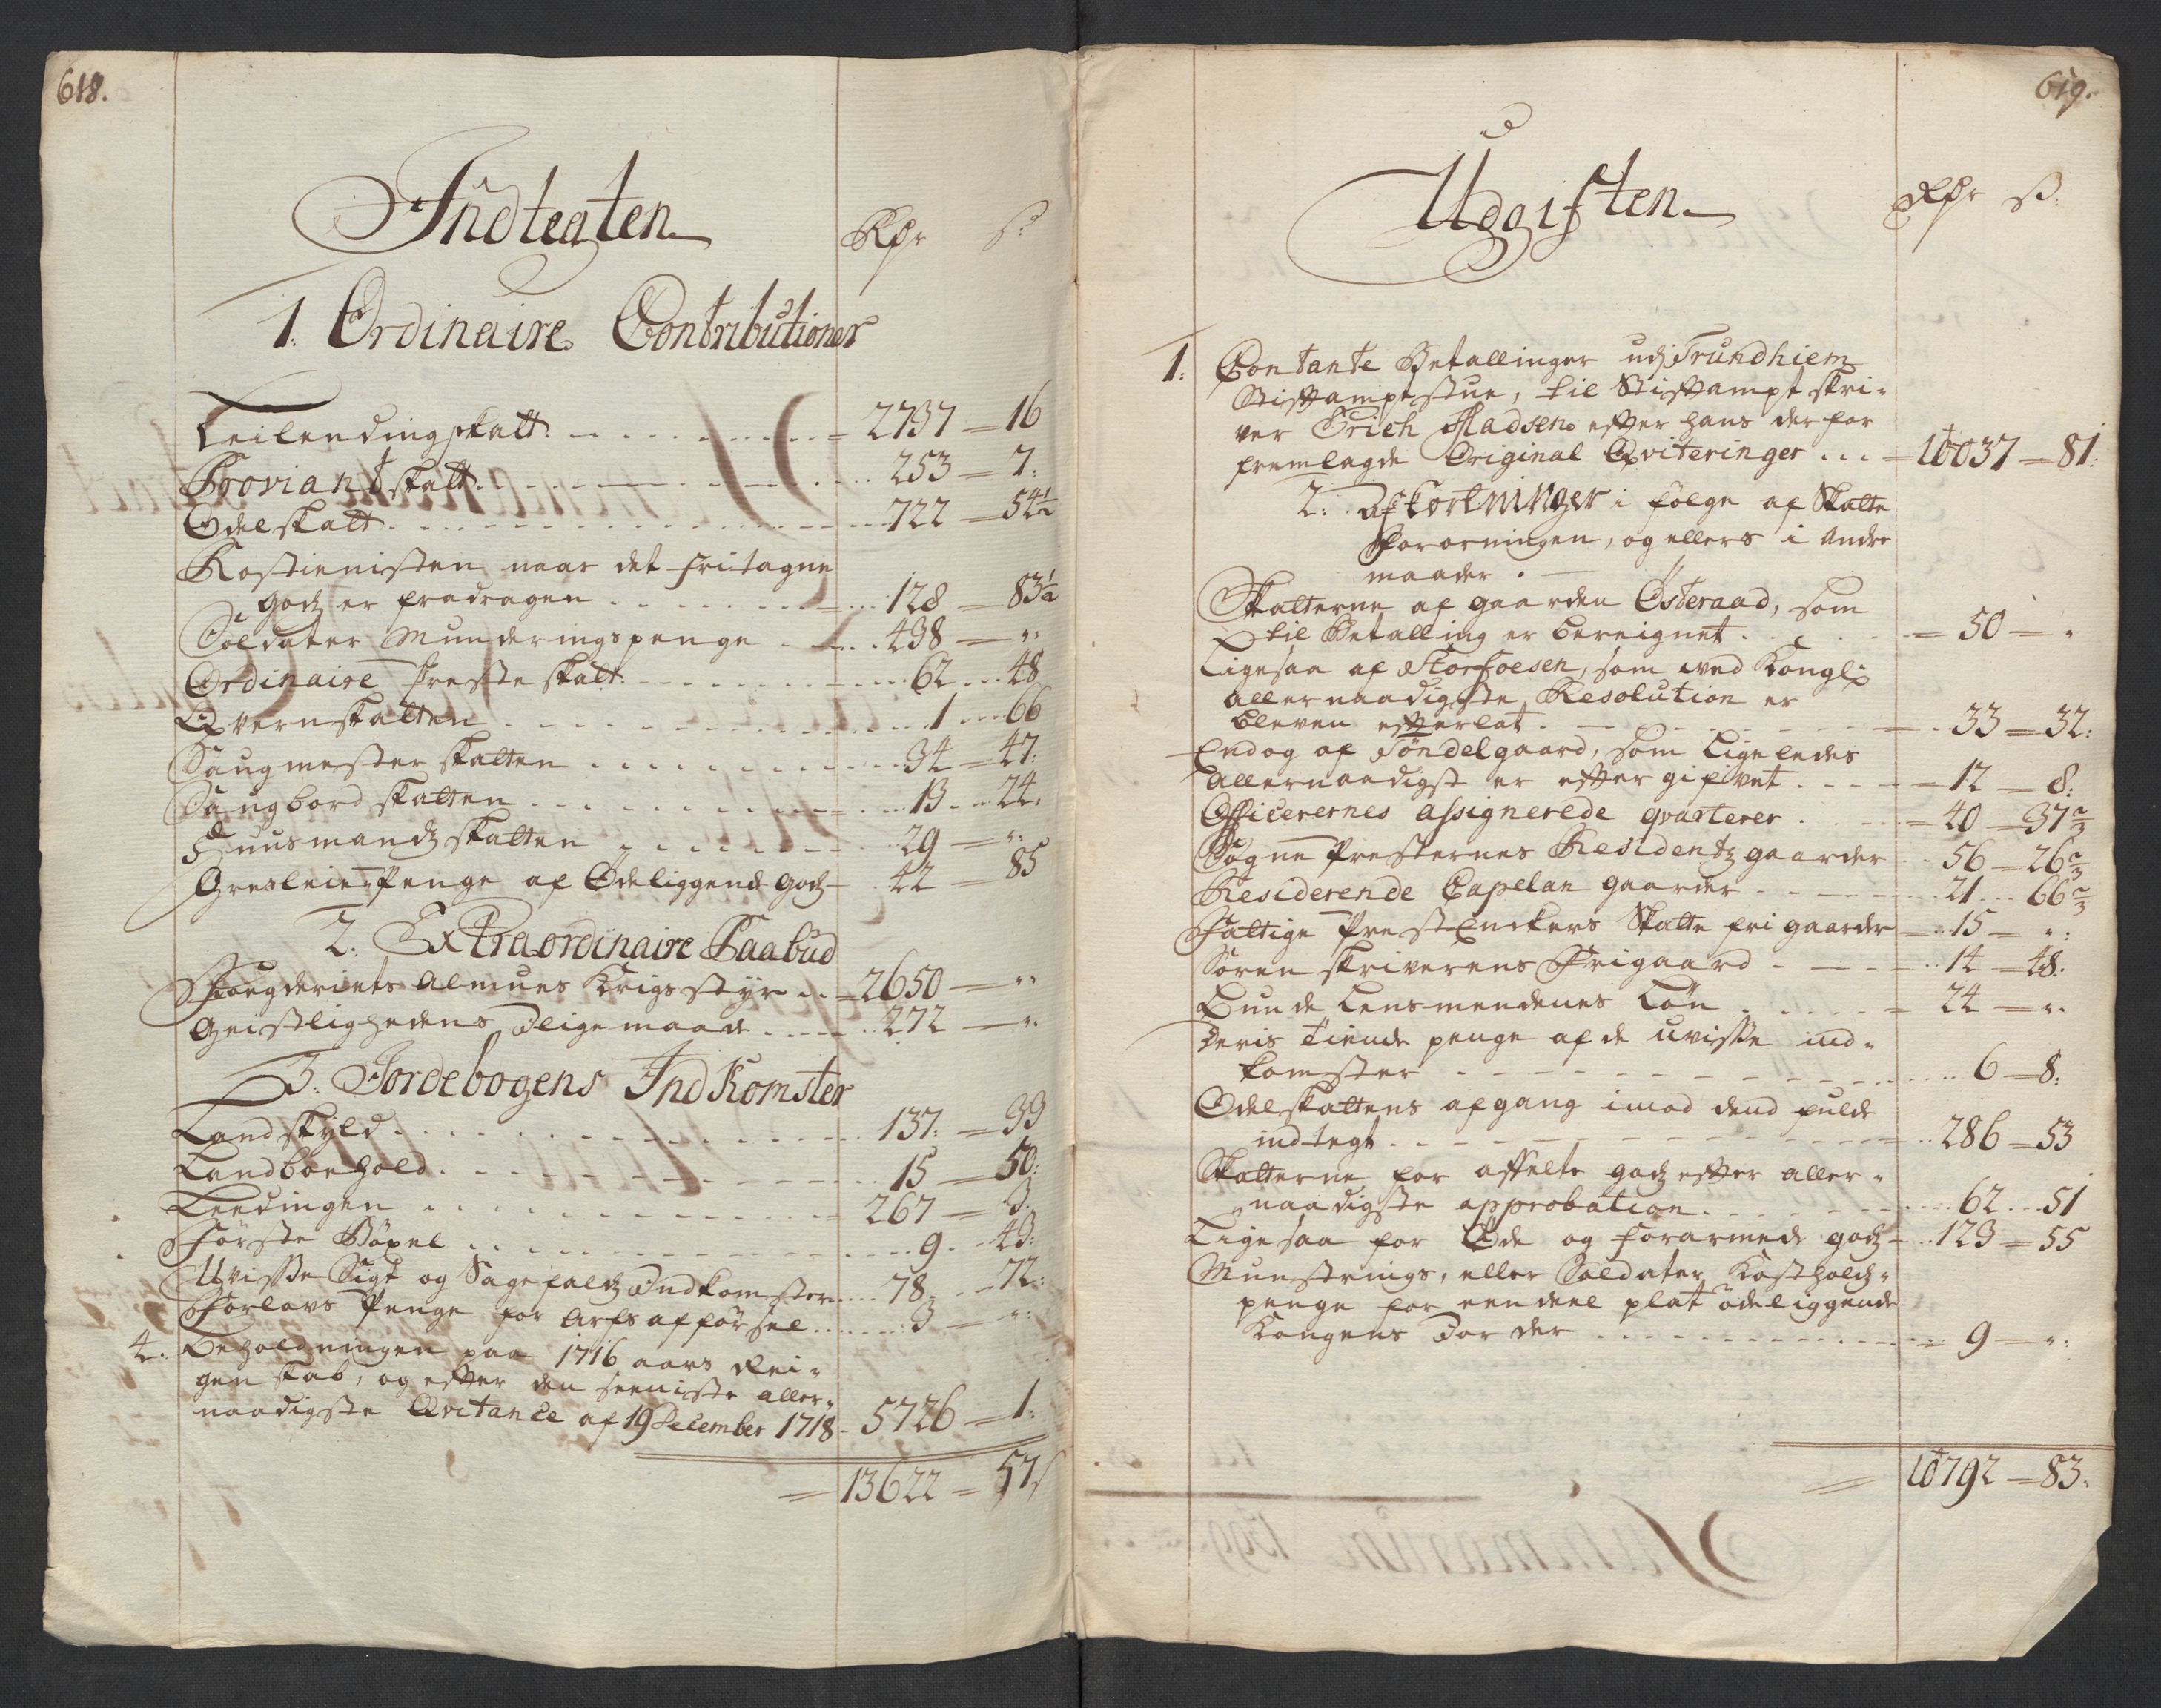 618.
Indtegten
Rdr s:
1. Ordinaire Contributioner
Leilendingskatt. 2737 16
Proviantskatt. 253 7:
Odelskatt. 722 54½
Rostienisten naar det fritagne
godz er fradragen 128 83½
Soldater Munderingspenge 438 "
Ordinaire Presteskatt. 62 48
Qvernskatten 1 66
Saugmesterskatten 34 47:
Saugbordskatten 13 24.
Huusmandz skatten 29 "
Gresleie Penge af Ødeliggende godz 42 85
2. Extraordinaire Paabud
Fougderiets Almues Krigsstyr 2650 "
Geistlighedens Iligemaade 272 "
3. Jordebogens IndKomster
Landskyld 137: 33
Landboehold 15 50:
Leedingen 267 3.
Første Bøxel 9 43:
Uvisse Sigt og Sagefaldz Indkomster 78 72:
Forlovs Penge for Arfs afførsel 3 "
4. Beholdningen paa 1716 aars Rei-
genskab, og effter den seeniste aller-
naadigste Qvitance af 19 December 1718 5726 1:
13622 57
619.
Udgiften
Rdr s:
1. Contante Betallinger udj Trundhiem
Stiftamptstue, til Stiftamptskri-
ver Erich Madsen effter hans derfor
fremlagde Original Qviteringer 10037 81:
2. Afkortninger i følge af Skatte
Fororningen, og ellers i Andre
maader.
Skatterne af gaarden Østeraad, som
til Betalling er bereignet 50 "
Ligesaa af Storfosen, som ved Kongl:
allernaadigste Resolution er
bleven effterlat. 33 32:
Endog af Tøndelgaard, som Ligeledes
Allernaadigst er effter gifvet 12 8:
Officerernes assignerede qvarterer 40 37⅔
Sogne Presternes Residentz gaarder 56 26⅔
Residerende Capelan gaarder 21 66⅔
Fattige PrestEnckers Skatte fri gaarder 15 ":
Sorenskriverens Frigaard 14 48.
Bunde Lensmendenes Løn 24 "
Deris tiende penge af de uvisse ind-
komster 6 8:
Odelskattens afgang imod dend fulde
indtegt 286 53
Skatterne for affelte godz effter aller-
naadigste approbation 62 51
Ligesaa for Øde og forarmede godz 123 55
Munstrings, eller Soldater Kostholds
penge for eendeel plat ødeliggende
Kongens Jorder 9 ":
10792 83.